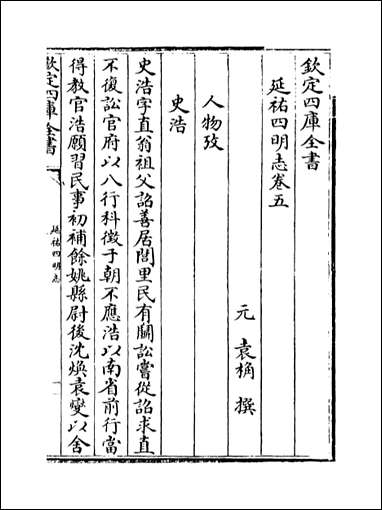 欽定四庫全書
延祐四明志卷五
元 袁桷 撰
人物攷
史浩
史浩字直翁祖父詔善居閭里民有鬬訟嘗從詔求直
不復訟官府以八行科徵于朝不應浩以南省前行當
得教官浩願習民事初補餘姚縣尉後沈煥袁燮以舍
欽定四庫全書
延祐四明志